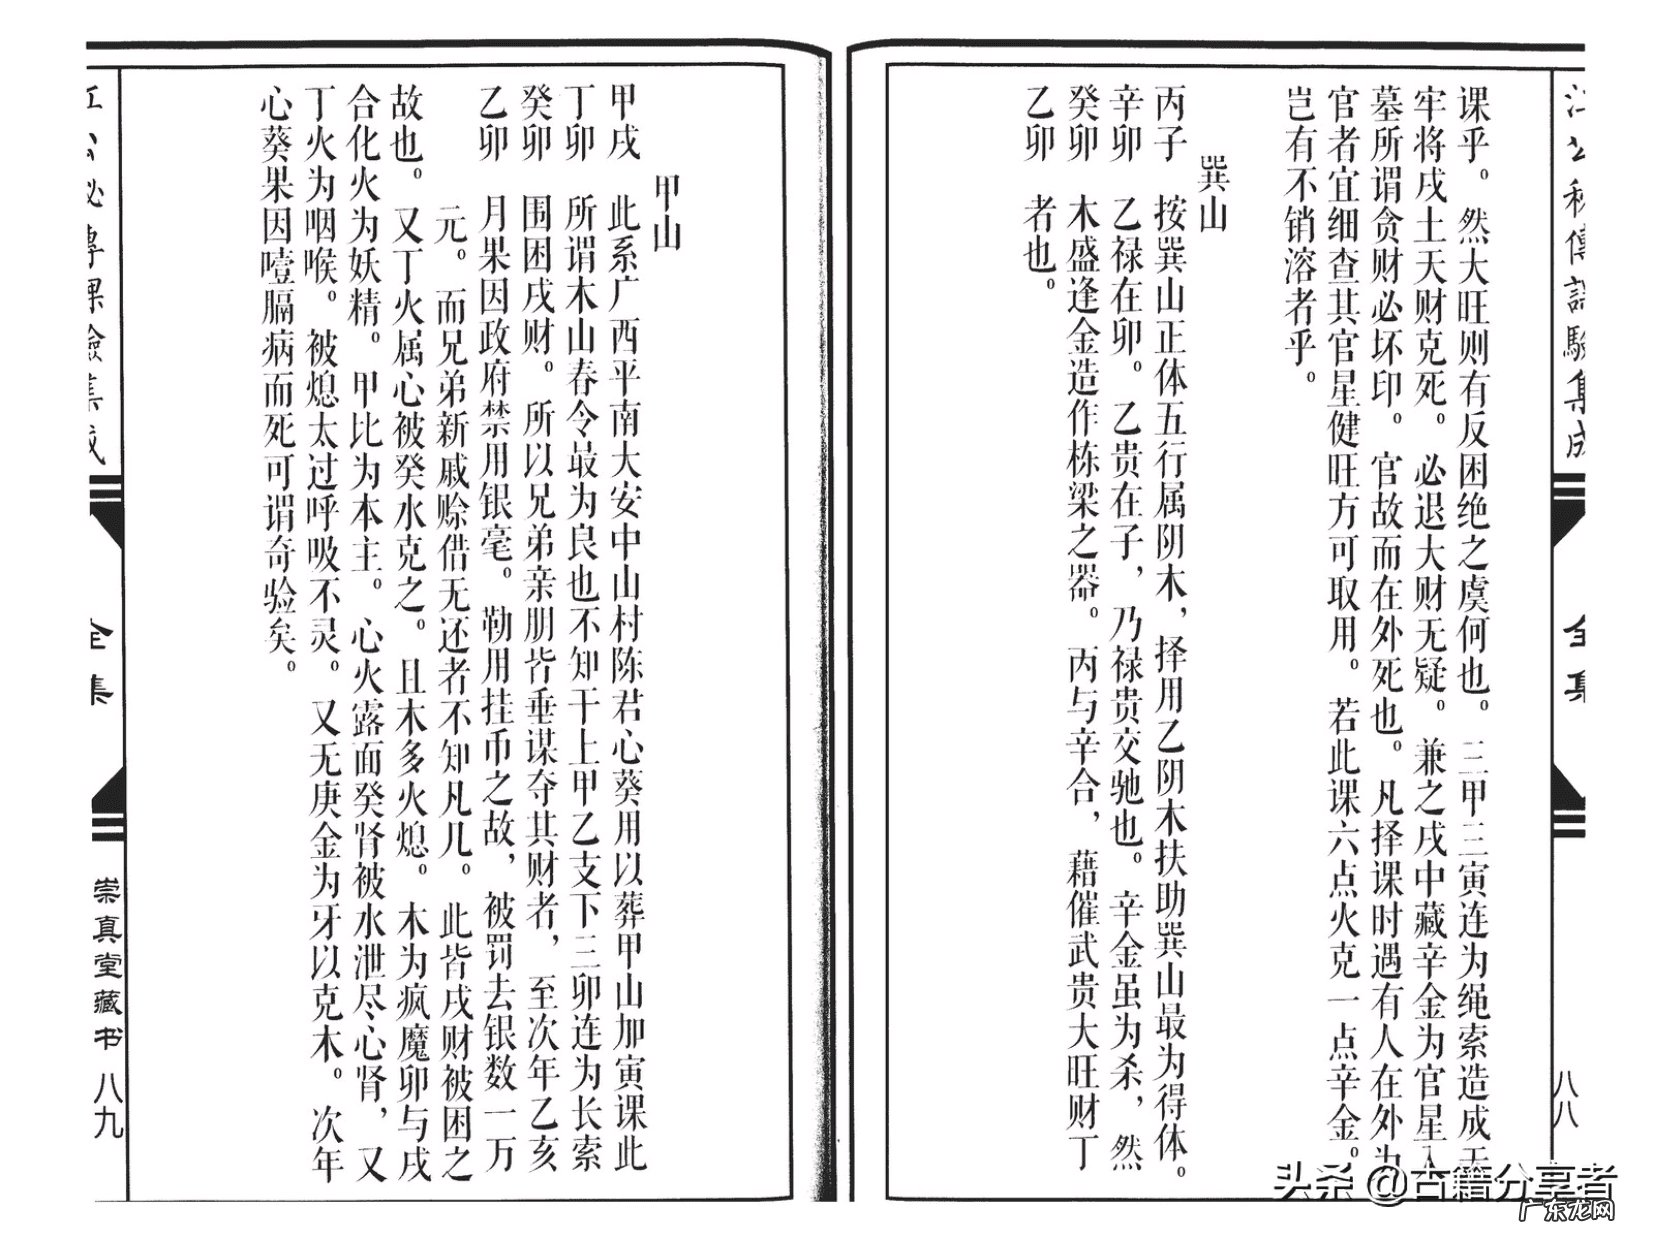 江公秘传课验集成
全集
八八
课乎。然大旺则有反困绝之虞何也。三甲三寅连为绳索造成天
牢将戌土天财克死。必退大财无疑。兼之戌中藏辛金为官星入
墓所谓贪财必坏印。官故而在外死也。凡择课时遇有人在外为
官者宜细查其官星健旺方可取用。若此课六点火克一点辛金。
岂有不销溶者乎。
巽山
丙子 按巽山正体五行属阴木，择用乙阴木扶助巽山最为得体。
辛卯 乙禄在卯。乙贵在子，乃禄贵交驰也。辛金虽为杀，然
癸卯 木盛逢金造作栋梁之器。丙与辛合，藉催武贵大旺财丁
乙卯 者也。
甲山
甲戌 此系广西平南大安中山村陈君心葵用以葬甲山加寅课此
丁卯 所谓木山春令最为良也不知干上甲乙支下三卯连为长索
癸卯 围困戌财。所以兄弟亲朋皆垂谋夺其财者，至次年乙亥
乙卯 月果因政府禁用银毫。勒用挂币之故，被罚去银数一万
元。而兄弟新戚赊借无还者不知凡几。此皆戌财被困之
故也。又丁火属心被癸水克之。且木多火熄。木为疯魔卯与戌
合化火为妖精。甲比为本主。心火露面癸肾被水泄尽心肾，又
丁火为咽喉。被熄太过呼吸不灵。又无庚金为牙以克木。次年
心葵果因噎膈病而死可谓奇验矣。
江公秘传课验集成
全集
崇真堂藏书
八九
头杀 @古籍分享者
广东龙网